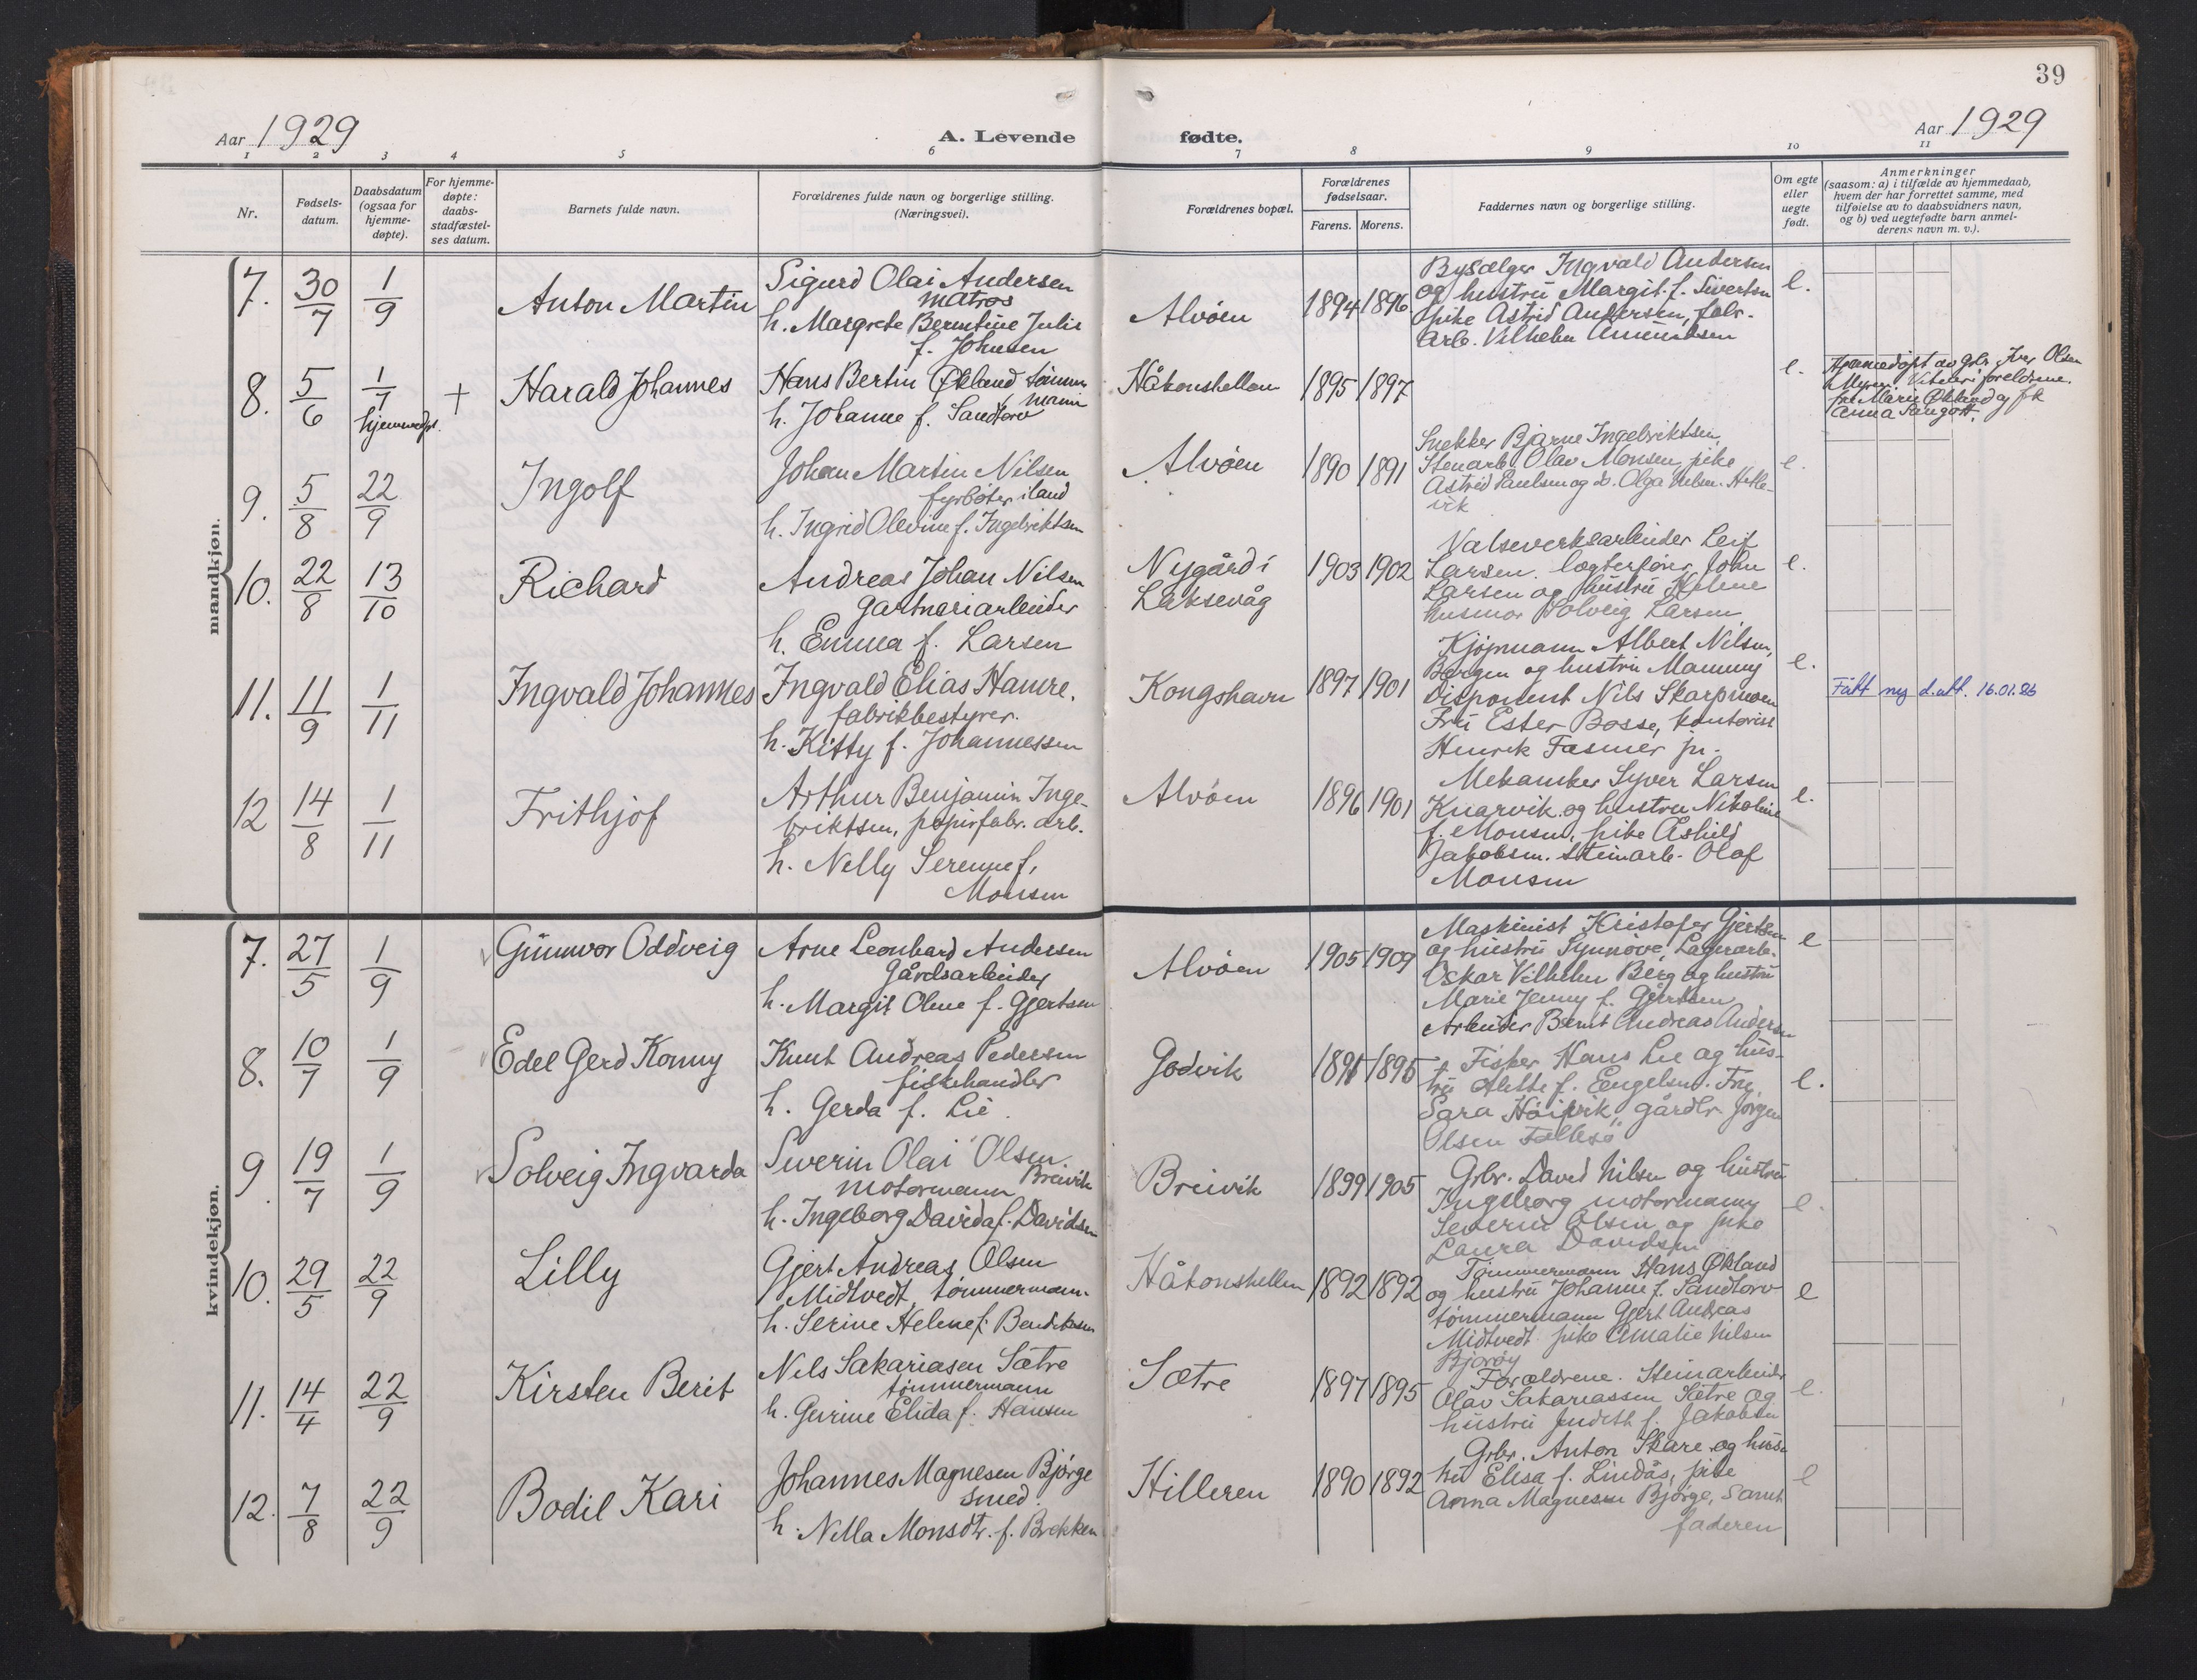 39
Aar 1929
A. Levende fødte.
Aar 1929
1 2 3 4 5 6 7 8 9 10 11
Nr.
Fødsels-
datum.
Daabsdatum
(ogsaa for
hjemme-
døpte).
For hjemme-
døpte:
daabs-
stadfæstel-
ses datum.
Barnets fulde navn.
Forældrenes fulde navn og borgerlige stilling.
(Næringsvei).
Forældrenes bopæl.
Forældrenes
fødselsaar.
Farens. Morens.
Faddernes navn og borgerlige stilling.
Om egte
eller
uegte
født.
Anmerkninger
(saasom: a) i tilfælde av hjemmedaab,
hvem der har forrettet samme, med
tilføielse av to daabsvidners navn,
og b) ved uegtefødte barn anmel-
derens navn m. v.).
mandkjøn.
7. 30/7 1/9 Anton Martin
Sigurd Olai Andersen
matros
h. Margrete Berntine Julie
f. Johnsen
Alvøen 1894 1896
Bysælger Ingvald Andersen
og hustru Margit f. Sivertsen
pike Astrid Andersen, fabr.
arb. Vilhelm Amundsen
e.
8. 5/6 1/7 hjemmedpt. + Harald Johannes
Hans Bertin Økland tømmer
mann
h. Johanne f. Sandtorv
Håkonshellen 1895 1897
e.
Hjemmedøpt av gbr. Iver Olsen
Myren. Vitner: foreldrene.
frk Marie Økland og frk
Anna
9. 5/8 22/9 Ingolf
Johan Martin Nilsen
fyrbøter iland
h. Ingrid Olevine f. Ingebriktsen
Alvøen 1890 1891
Snekker Bjarne Ingebriktsen,
Stenarb. Olav Monsen, pike
Astrid Paulsen og d. Olga Nilsen. Hetle-
vik
e.
10. 22/8 13/10 Richard
Andreas Johan Nilsen
gartneriarbeider
h. Emma f. Larsen
Nygård i
Laksevåg
1903 1902
Valseverksarbeider Leif
Larsen. lægterfører John
Larsen og hustru Helene
husmor Solveig Larsen
e.
11. 11/9 1/11 Ingvald Johannes
Ingvald Elias Hamre.
fabrikbestyrer.
h. Kitty f. Johannessen
Kongshavn 1897 1901
Kjøpmann Albert Nilsen,
Bergen og hustru Mammy
Disponent Nils Skarpmoen
Fru Ester Bosse, kontorist
Henrik Fasmer jr.
e.
Fått ny d.att. 16.01.86
12 14/8 1/11 Frithjof
Arthur Benjamin Inge-
briktsen, papirfabr. arb.
h. Nelly Serene f.
Monsen
Alvøen 1896 1901
Mekaniker Syver Larsen
Knarvik og hustru Nikoline
f. Monsen, pike Åshild
Jakobsen. Steinarb. Olaf
Monsen
e.
kvindekjøn.
7. 27/5 1/9 Gunnvor Oddveig
Arne Leonhard Andersen
Gårdsarbeider
h. Margit Oline f. Gjertsen
Alvøen 1905 1909
Maskinist Kristofer Gjertsen
og hustru Synnøve, Lagerarb.
Oskar Vilhelm Berg og hustru
Marie Jenny f. Gjertsen
Arbeider Bernt Andreas Andersen
e
8. 10/7 1/9 Edel Gerd Konny
Knut Andreas Pedersen
fiskehandler
h. Gerda f. Lie.
Godvik 1891 1895
Fisker Hans Lie og hus-
tru Alette f. Engelsen. Fru
Sara Håipvik, gårdbr. Jørgen
Olsen
e.
9 19/7 1/9 Solveig Ingvarda
Severin Olai Olsen
Breivik
motormann
h. Ingeborg Davida f. Davidsen
Breivik 1899 1905
Grbr. David Nilsen og hustru
Ingeborg motormann
Severin Olsen og pike
Laura Davidsen
e.
10. 29/5 22/9 Lilly
Gjert Andreas Olsen
Midtvedt, tømmermann.
h. Serine Helene f. Bendiksen
Håkonshellen 1892 1892
Tømmermann Hans Økland
og hustru Johanne f. Sandtorv
tømmermann Gjert Andreas
Midtvedt pike Amalie Nilsen
Bjorøy
e
11. 14/4 22/9 Kirsten Berit
Nils Sakariasen Sætre
tømmermann
h. Gurine Elida f. Hansen
Sætre 1897 1895
Forældrene. Steinarbeider
Olav Sakariassen Sætre og
hustru Judith f. Jakobsen
e.
12. 7/8 22/9 Bodil Kari
Johannes Magnesen Bjørge
smed.
h. Nilla Monsdtr. f. Brekken
Hilleren 1890 1892
Grbr. Anton Skare og hus-
tru Elisa f. Lindås, pike
Anna Magnesen Bjørge, samt
faderen
e